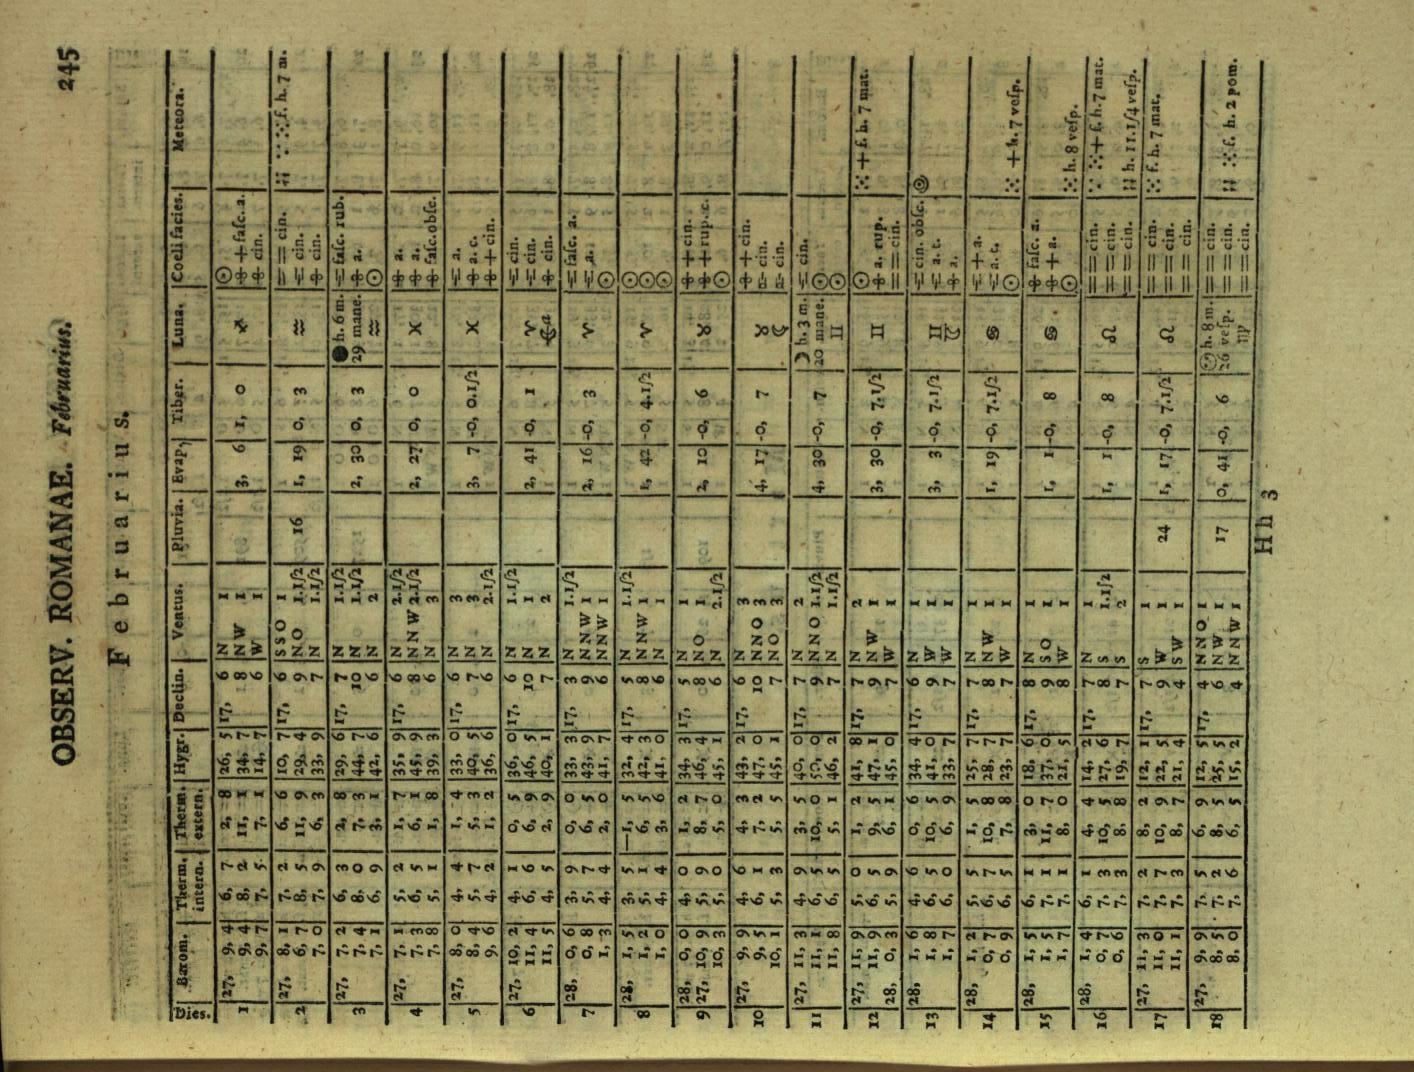 OBSERV. ROMANAE. Februarius. 245
Februarius.
Dies. | Barom. | Therm. intern. | Therm. extern. | Hygr. | Declin. | Ventus. | Pluvia. | Evap. | Tiber. | Luna. | Coeli facies. | Meteora.
1 | 27, 9, 4 | 6, 7 | 2, 8 | 26, 5 | 17, 6 | N 1 | | 3, 6 | 1, 0 | ♐ | ☉
9, 4 | 8, 2 | 11, 1 | 34, 7 | 8 | NW 1 | + fasc. a.
9, 7 | 7, 5 | 7, 1 | 14, 7 | 6 | W 1 | cin.
2 | 27, 8, 1 | 7, 2 | 6, 6 | 10, 7 | 17, 6 | SSO 1 | 16 | 1, 19 | 0, 3 | ♒ | == cin. | f. h. 7 m.
6, 7 | 8, 5 | 11, 9 | 29, 4 | 9 | NO 1.1/2 | cin.
7, 0 | 7, 9 | 6, 3 | 33, 9 | 7 | N 1.1/2 | cin.
3 | 27, 7, 2 | 6, 3 | 2, 8 | 29, 6 | 17, 7 | N 1.1/2 | | 2, 30 | 0, 3 | ● h. 6 m. | fasc. rub.
7, 4 | 8, 0 | 7, 3 | 44, 7 | 10 | N 1.1/2 | 29 mane. | a.
7, 1 | 6, 9 | 3, 1 | 42, 6 | 6 | N 2 | ♒ | ☉
4 | 27, 7, 1 | 5, 2 | 1, 7 | 35, 9 | 17, 6 | N 2.1/2 | | 2, 27 | 0, 0 | ♓ | a.
7, 3 | 6, 5 | 6, 1 | 45, 9 | 8 | NNW 2.1/2 | a.
7, 8 | 5, 1 | 1, 8 | 39, 3 | 6 | N 3 | fasc. obsc.
5 | 27, 8, 0 | 4, 4 | 1, 4 | 33, 0 | 17, 6 | N 3 | | 3, 7 | -0, 0.1/2 | ♓ | a.
8, 4 | 5, 7 | 5, 3 | 40, 5 | 7 | N 3 | a. c.
9, 6 | 4, 2 | 1, 2 | 36, 6 | 6 | N 2.1/2 | + cin.
6 | 27, 10, 2 | 4, 1 | 0, 5 | 36, 0 | 17, 6 | N 1.1/2 | | 2, 41 | -0, 1 | ♈ | cin.
11, 4 | 6, 6 | 6, 9 | 46, 5 | 10 | N 1 | cin.
11, 5 | 4, 5 | 2, 9 | 40, 1 | 7 | N 2 | cin.
7 | 28, 0, 6 | 3, 9 | 0, 0 | 33, 3 | 17, 3 | N 1.1/2 | | 2, 16 | -0, 3 | ♈ | fasc. a.
0, 8 | 5, 7 | 6, 5 | 43, 9 | 9 | NNW 1 | a.
1, 3 | 4, 4 | 2, 0 | 41, 7 | 6 | NNW 1 | ☉
8 | 28, 1, 5 | 3, 5 | —1, 5 | 32, 4 | 17, 5 | N 1.1/2 | | 1, 42 | -0, 4.1/2 | ♈ | ☉
1, 2 | 5, 1 | 6, 5 | 42, 3 | 8 | NNW 1 | ☉
1, 0 | 4, 4 | 3, 6 | 41, 0 | 6 | N 1 | ☉
9 | 28, 0, 0 | 4, 0 | 1, 2 | 34, 3 | 17, 5 | N 1 | | 2, 10 | -0, 6 | ♉ | + cin.
27, 10, 9 | 5, 9 | 8, 7 | 46, 4 | 8 | NO 1 | + rup. c.
10, 3 | 5, 0 | 5, 0 | 45, 1 | 6 | N 2.1/2 | ☉
10 | 27, 9, 9 | 4, 6 | 4, 3 | 43, 2 | 17, 6 | N 3 | | 4, 17 | -0, 7 | ♉ | + cin.
9, 5 | 6, 1 | 7, 2 | 47, 0 | 10 | NNO 3 | cin.
10, 1 | 5, 3 | 5, 5 | 45, 1 | 7 | NO 3 | cin.
11 | 27, 11, 3 | 4, 9 | 3, 5 | 40, 0 | 17, 7 | N 2 | | 4, 30 | -0, 7 | ☽ h. 3 m. | cin.
11, 1 | 6, 5 | 10, 0 | 50, 0 | 9 | NNO 1.1/2 | 20 mane. | ☉
11, 8 | 6, 5 | 5, 1 | 46, 2 | 7 | N 1.1/2 | ♊ | ☉
12 | 27, 11, 9 | 5, 0 | 1, 2 | 41, 8 | 17, 7 | N 2 | | 3, 30 | -0, 7.1/2 | ♊ | ☉ | + f. h. 7 mat.
11, 9 | 6, 5 | 9, 5 | 47, 1 | 9 | NW 1 | a. rup.
28, 0, 3 | 5, 9 | 6, 1 | 45, 0 | 7 | W 1 | == cin.
13 | 28, 1, 6 | 4, 6 | 0, 6 | 34, 4 | 17, 6 | N 1 | | 3, 3 | -0, 7.1/2 | ♊ | cin. obsc.
1, 8 | 6, 5 | 10, 5 | 41, 0 | 9 | W 1 | a. t.
1, 7 | 5, 0 | 6, 9 | 33, 7 | 7 | W 1 | a.
14 | 28, 1, 2 | 5, 5 | 1, 5 | 25, 7 | 17, 7 | N 1 | | 1, 19 | -0, 7.1/2 | ♋ | + a.
0, 7 | 6, 7 | 10, 8 | 28, 7 | 8 | NW 1 | a. c.
0, 9 | 6, 5 | 7, 8 | 23, 7 | 7 | W 1 | ☉ | + h. 7 vesp.
15 | 28, 1, 5 | 6, 1 | 3, 0 | 18, 6 | 17, 8 | N 1 | | 1, 1 | -0, 8 | ♋ | fasc. a.
1, 5 | 7, 1 | 11, 7 | 37, 0 | 9 | SO 1 | + a.
1, 7 | 7, 1 | 8, 0 | 21, 5 | 8 | W 1 | ☉ | h. 8 vesp.
16 | 28, 1, 4 | 6, 1 | 4, 4 | 14, 2 | 17, 7 | N 1 | | 1, 1 | -0, 8 | ♌ | == cin. | + f. h. 7 mat.
0, 7 | 7, 3 | 10, 5 | 27, 6 | 8 | S 1.1/2 | == cin.
0, 6 | 7, 3 | 8, 8 | 19, 7 | 7 | S 2 | == cin. | h. 11.1/4 vesp.
17 | 27, 11, 3 | 7, 2 | 8, 2 | 12, 1 | 17, 7 | S 1 | 24 | 1, 17 | -0, 7.1/2 | ♌ | == cin. | f. h. 7 mat.
11, 0 | 7, 7 | 10, 9 | 22, 5 | 9 | W 1 | == cin.
11, 1 | 7, 3 | 8, 7 | 21, 4 | 4 | SW 1 | == cin.
18 | 27, 9, 9 | 7, 5 | 6, 9 | 12, 5 | 17, 4 | NNO 1 | 17 | 0, 41 | -0, 6 | h. 8 m. | == cin.
8, 5 | 7, 2 | 8, 5 | 25, 5 | 6 | NW 1 | 26 vesp. | == cin. | f. h. 2 pom.
8, 0 | 7, 6 | 6, 5 | 15, 2 | 4 | NNW 1 | ♍ | == cin.
Hh 3